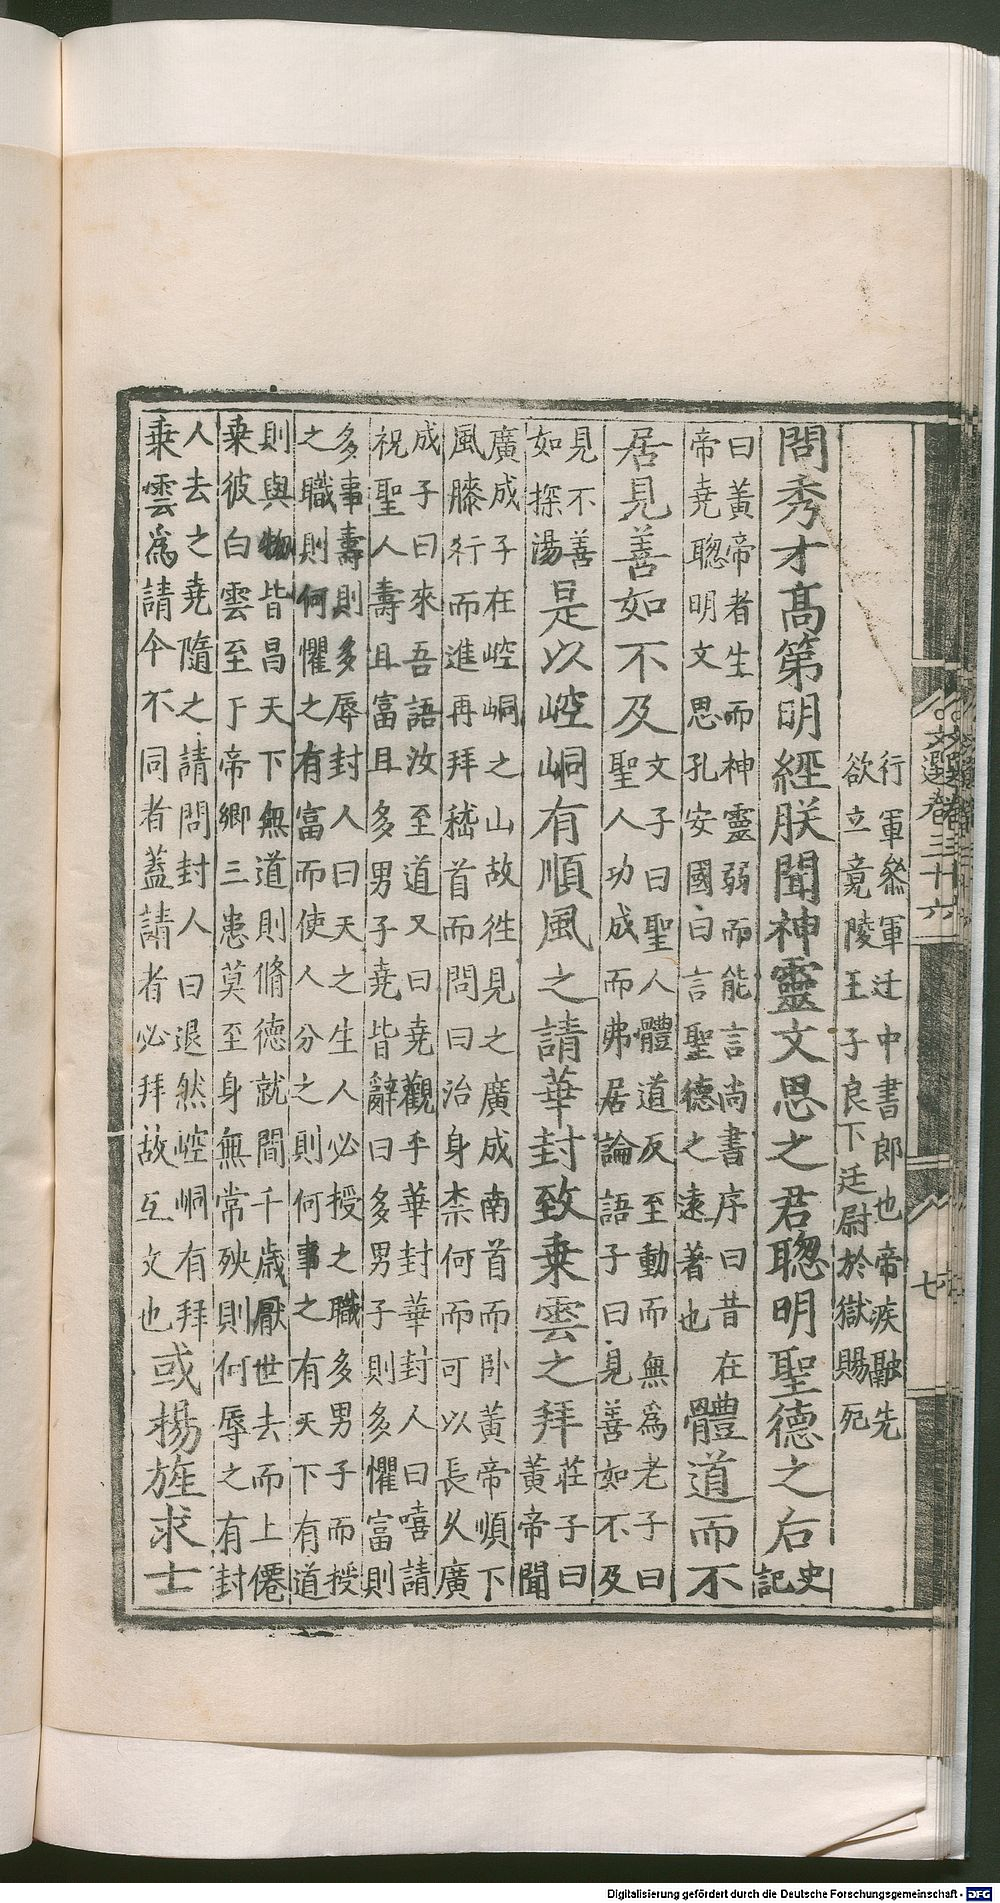 行軍叅軍迁中書郎也帝疾融先
欲立竟陵王子良下廷尉於獄賜死
問秀才高第明經朕聞神靈文思之君聦明聖德之后
史
記
曰黃帝者生而神靈弱而能言尚書序曰昔在
帝堯聦明文思孔安國曰言聖德之遠著也
體道而不
居見善如不及
文子曰聖人體道反至動而無為老子曰
聖人功成而弗居論語子曰見善如不及
見不善
如探湯
是以崆峒有順風之請華封致乗雲之拜
莊子曰
黃帝聞
廣成子在崆峒之山故徃見之廣成南首而卧黃帝順下
風膝行而進再拜嵇首而問曰治身柰何而可以長乆廣
成子曰來吾語汝至道又曰堯觀乎華封華封人曰嘻請
祝聖人壽且富且多男子堯皆辭曰多男子則多懼富則
多事壽則多辱封人曰天之生人必授之職多男子而授
之職則何懼之有富而使人分之則何事之有天下有道
則與物皆昌天下無道則脩德就閒千歳厭世去而上僊
乗彼白雲至于帝鄉三患莫至身無常殃則何辱之有封
人去之堯隨之請問封人曰退然崆峒有拜
乗雲為請今不同者蓋請者必拜故互文也
或揚旌求士
文選卷三十六
七
Digitalisierung gefördert durch die Deutsche Forschungsgemeinschaft - DFG